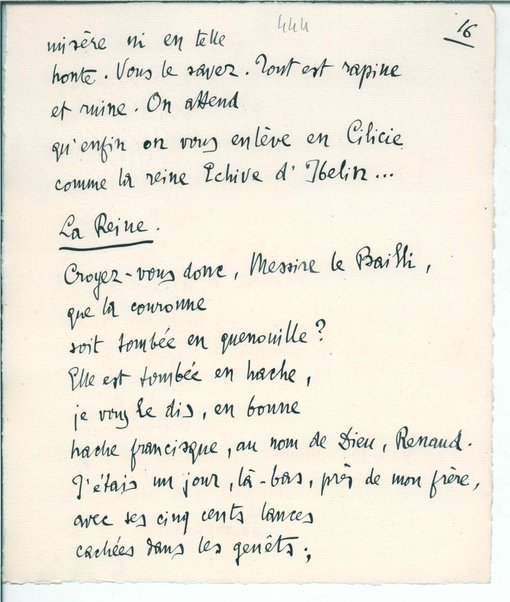 444
16
misère ni en telle
honte. Vous le savez. Tout est rapine
et ruine. On attend
qu'enfin on vous enlève en Cilicie
comme la reine Echive d'Ibelin...
La Reine.
Croyez-vous donc, Messire le Bailli,
que la couronne
soit tombée en quenouille ?
Elle est tombée en hache,
je vous le dis, en bonne
hache francisque, au nom de Dieu, Renaud.
J'étais un jour, là-bas, près de mon frère,
avec ses cinq cents lances
cachées dans les genêts ;